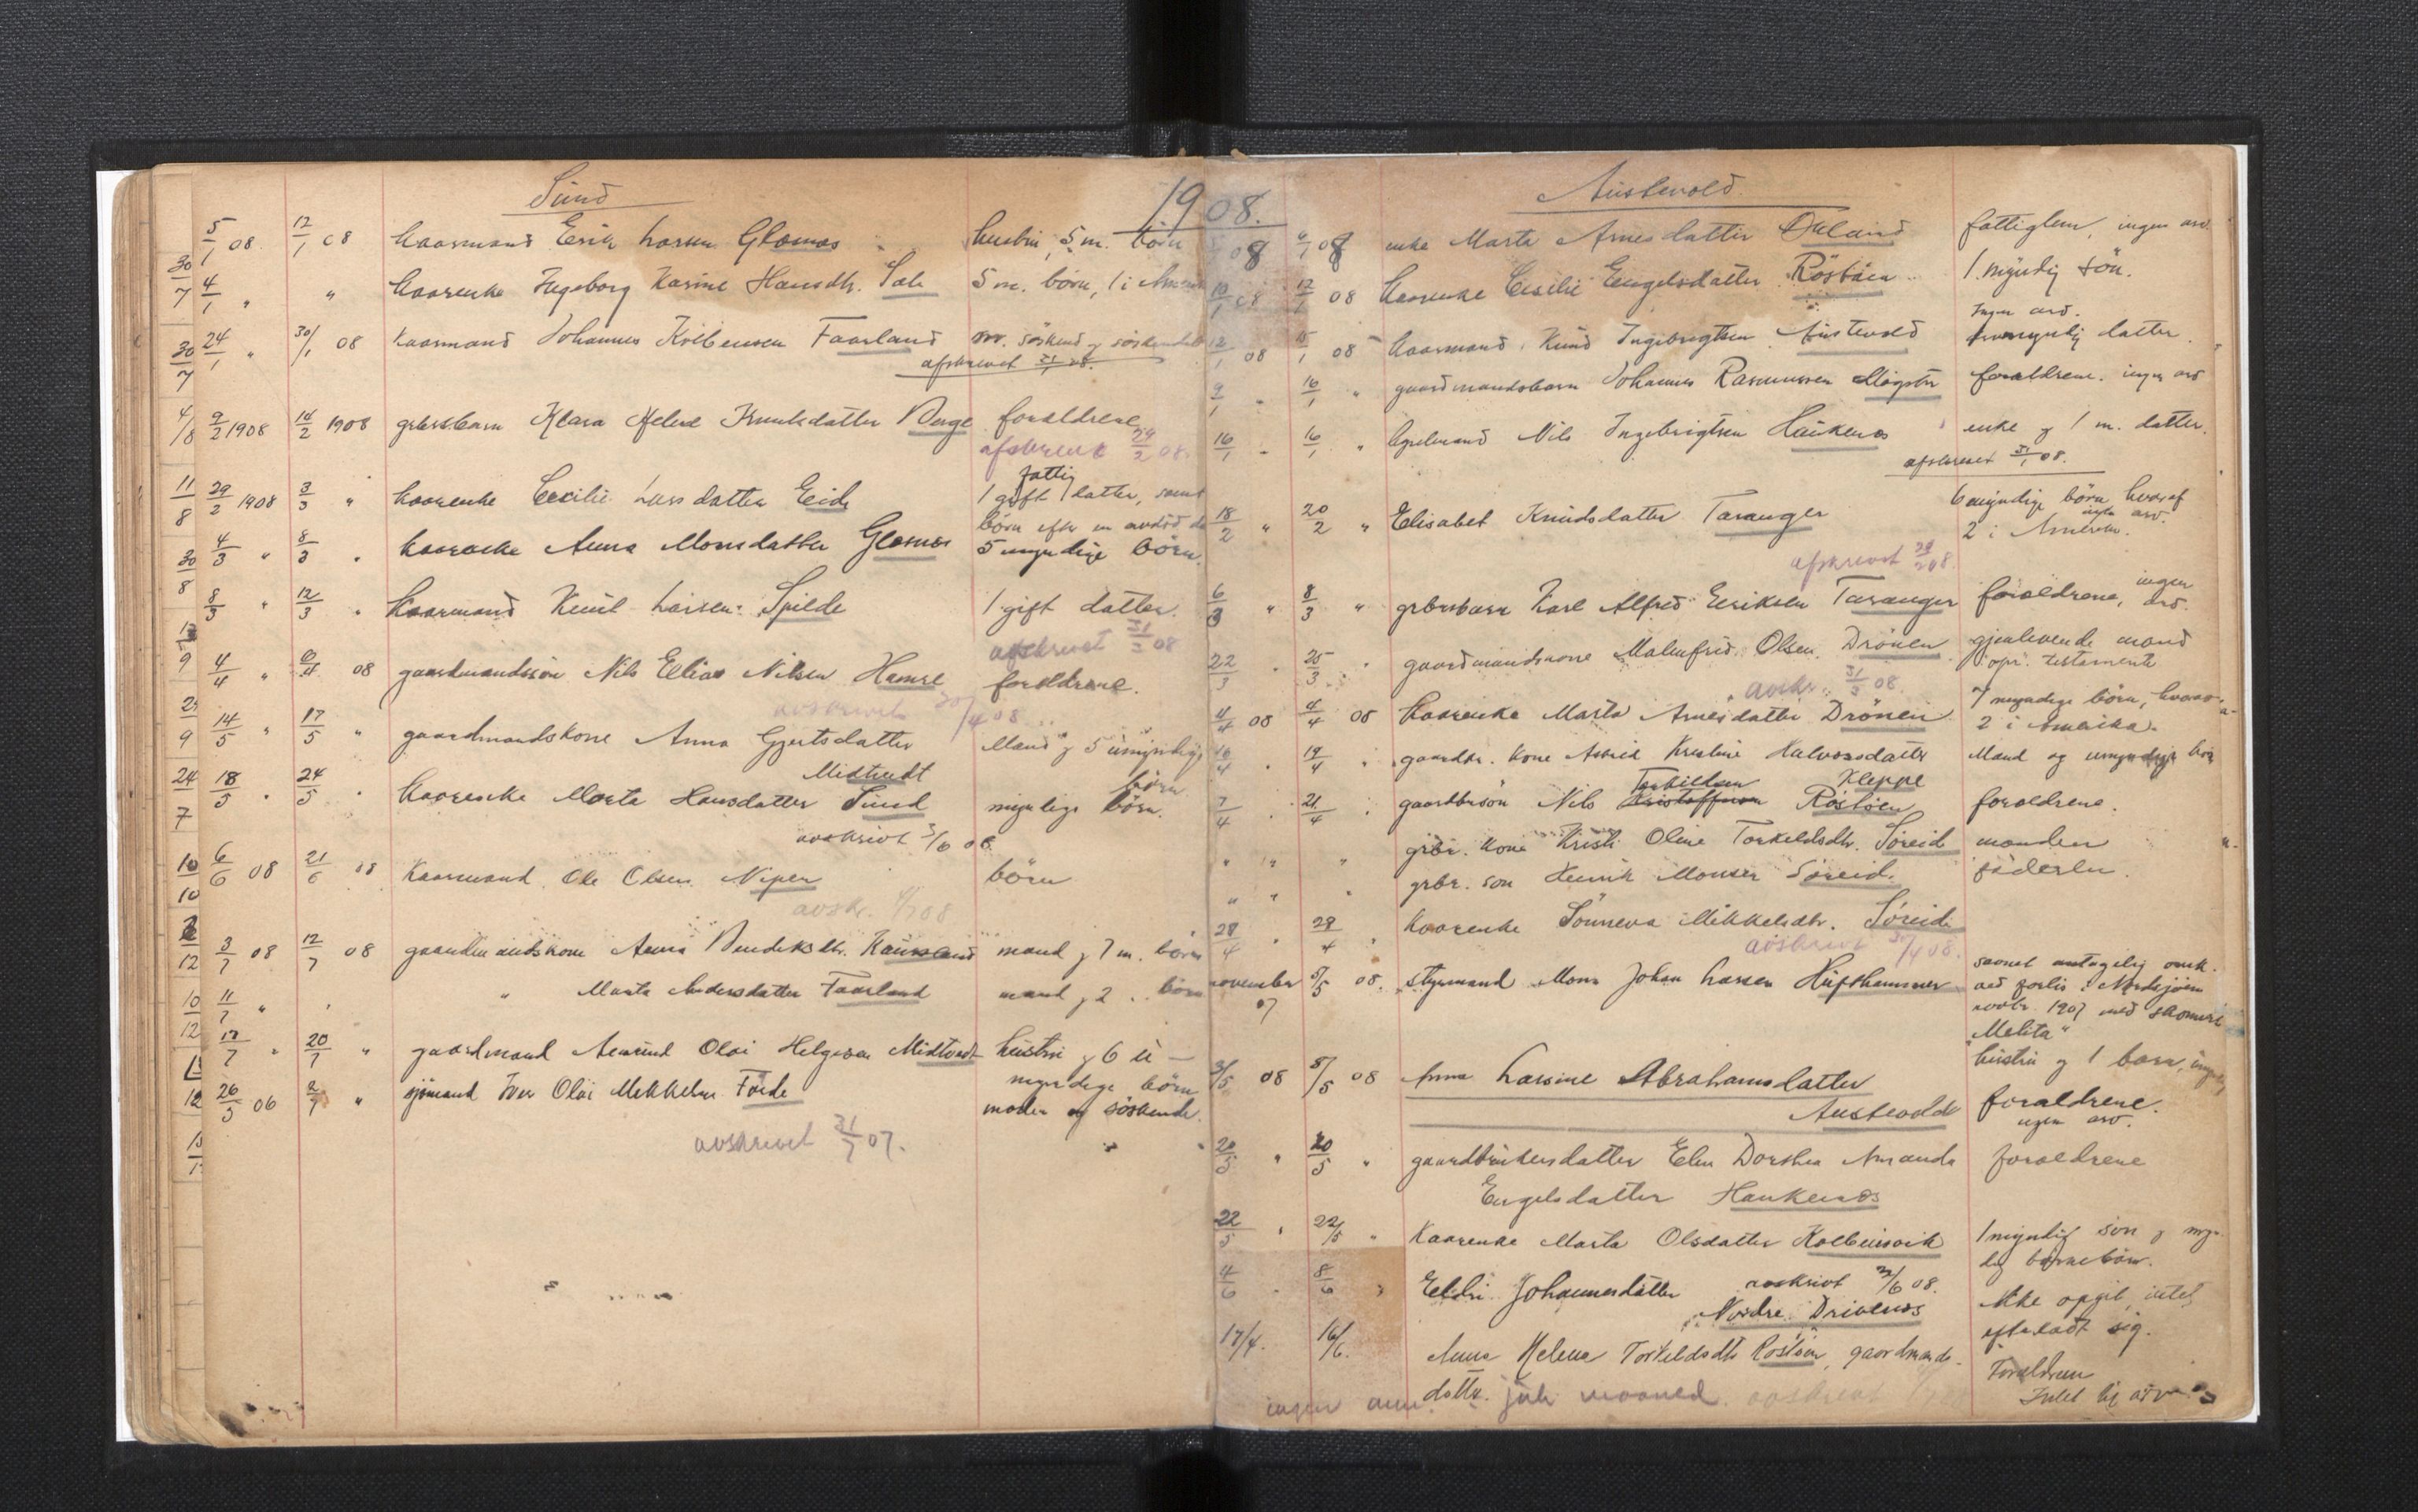 Sund
1908.
5/1 08. 12/1 08 Kaarmand Erik Larsen Glesnæs hustru, 5 m. börn
30/7 4/1 " " Kaarenke Ingeborg Karine Hansdtr. Tale 5 m. börn, 1 i Amerik
30/7 24/1 " 30/1 08 Kaarmand Johannes Kolbensen Faarland söskend og söskendeb
afskrevet 31/1 08.
4/8 9/2 1908 14/2 1908 grbrs.barn Klara Helene Knutsdatter Berge forældrene
afskrevet 29/2 08.
11/8 29/2 1908 3/3 " Kaarenke Cecilie Larsdatter Eide 1 gift datter, samt
fattig
börn efter en avdöd da
30/8 4/3 " 8/3 " Kaarenke Anna Monsdatter Glesnæs 5 myndige börn.
8/3 " 12/3 " Kaarmand Knut Larsen Spilde 1 gift datter.
avskrevet 31/3 08
4/4 " 6/4 08 gaardmandssön Nils Elias Nilsen Hamre forældrene.
avskrevet 30/4 08
14/5 " 17/5 " gaardmandskone Anna Gjertsdatter Mand og 5 umyndige
Midttveit börn
24/7 18/5 " 24/5 " Kaarenke Marta Hansdatter Sund myndige börn.
avskrevt 3/6 08
10/10 6/6 08 21/6 08 Kaarmand Ole Olsen Nipen börn
avskr. 1/7 08
12 3/7 08 12/7 08 gaardmandskone Anna Bendiksdtr. Kausland mand og 7 m. börn
10/12 11/7 " " " Marta Andersdatter Faarland mand og 2 " börn
17/7 " 20/7 " gaardmand Amund Olai Helgesen Midtveit hustru og 6 u-
myndige börn
12 26/5 06 2/7 " sjömand Iver Olai Mikkelsen Förde moder og söskende.
avskrevet 31/7 07.
Austevold.
08 6/1 08 enke Marta Arnesdatter Ökland fattiglem, ingen arv.
10/1 08 12/1 08 Kaarenke Cecilie Engelsdatter Röstöen 1 myndig sön.
Ingen arv.
12/1 08 15/1 08 Kaarmand Knud Ingebrigtsen Austevold myndig datter.
9/1 " 16/1 " gaardmandsbarn Johannes Rasmussen Mögster forældrene. ingen arv
16/1 " 16/1 " Nils Ingebrigtsen Haukenæs enke og 1 m. datter.
afskrevet 31/1 08.
18/2 " 20/2 " Elisabet Knudsdatter Taranger 6 myndige börn hvoraf
2 i Amerika. ingen arv.
afskrevet 29/2 08
6/3 " 8/3 " grbrsbarn Karl Alfred Eriksen Taranger forældrene, ingen arv.
22/3 " 25/3 " gaardmandskone Malmfrid Olsen Drönen gjenlevende mand
opr. testamente
avskr. 31/3 08.
4/4 08 4/4 08 Kaarenke Marta Arnesdatter Drönen 7 myndige börn, hvorav
2 i Amerika.
16/4 " 19/4 " gaardbr. kone Astrid Kristine Halvorsdatter Mand og umyndige börn
Torkildsen Kleppe
7/4 " 21/4 " gaardbrsön Nils Kristoffersen Röstöen forældrene.
" " " grbr. kone Kristi Oline Torkeldsdtr. Söreid manden
" " " grbr. sön Henrik Monsen Söreid. föderen.
28/4 " 28/4 " Kaarenke Sönneva Mikkelsdtr. Söreide
avskrevet 30/4 08.
november 07 5/5 08. styrmand Mons Johan Larsen Hufthammer savnet antagelig omk.
ved forlis i Nordsjöen
novbr. 1907 med skonnert
"Melita"
hustru og 1 barn, ingen
3/5 08 5/5 08 Anna Larsine Abrahamsdatter
Austevold forældrene.
ingen arv.
20/5 " 20/5 " gaardbrukersdatter Elen Dorthea Amanda forældrene
Engelsdatter Haukenæs
22/5 " 22/5 " Kaarenke Marta Olsdatter Kolbeinsvik 1 myndig sön og myn-
dig barnebarn.
4/6 " 8/6 " Eldri Johannesdatter avskrivt 3/6 08.
Nordre Drivenæs Ikke opgit, intet
efterladt sig.
17/4. 16/6. Anna Helena Torkeldsdtr Röstöen, gaardmands- Forældrene
datter. Intet til arv
ingen anm. juli maaned.